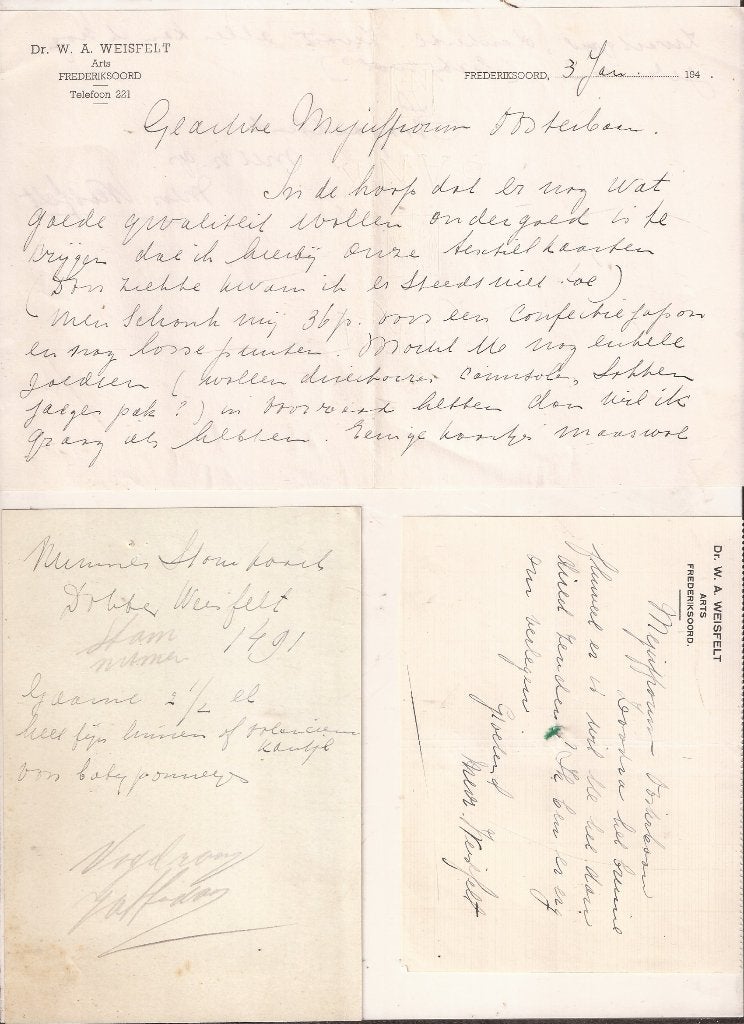 Dr. W. A. WEISFELT
Arts
FREDERIKSOORD
Telefoon 221
FREDERIKSOORD, 3 Jan. 194 .
Geachte Mejuffrouw Oosterbaan.
In de hoop dat er nog wat
goede qwaliteit wollen ondergoed is te
krijgen doe ik hierbij onze textielkaarten
(Door ziekte kwam ik er steeds niet toe)
Men schonk mij 36 p. voor een confectiejapon
en nog losse punten. Mocht U nog enkele
goederen (wollen directoires, camisole, sokken
jaeger pak?) in voorraad hebben dan wil ik
graag iets hebben. Eenige kaartjes maaswol
Nummer Stamkaart
Dokter Weisfelt
Stam
numer 1491
Gaarne 2 1/2 el
heel fijn linnen of valencien
kantje
voor baby ponnetjes
Dr. W. A. WEISFELT
ARTS
FREDERIKSOORD.
Mejuffrouw Oosterbaan
Zoodra het bruine
fluweel er is wilt U het dan
direct zenden? Ik ben er erg
om verlegen
Groetend
Mevr. Weisfelt